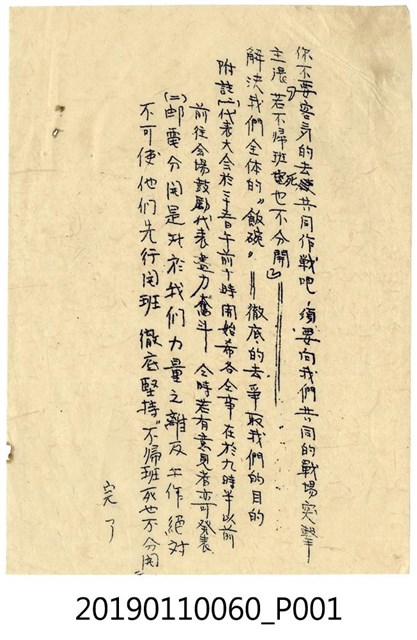 你不要客氣的去共同作戰吧，須要向我們共同的戰場突擊
主張「若不歸班死也不分開」
解決我們全体的"飯碗"＝徹底的去爭取我們的目的
附註(一)代表大会於三五日午前十時開始希各仝事在於九時半以前
前往会場鼓励代表盡力奮斗 仝時若有意見者亦可發表
(二)郵電分開是对於我們力量之離反工作絕对
不可使他們先行開班 徹底堅持"不歸班死也不分開"
完了
20190110060_P001